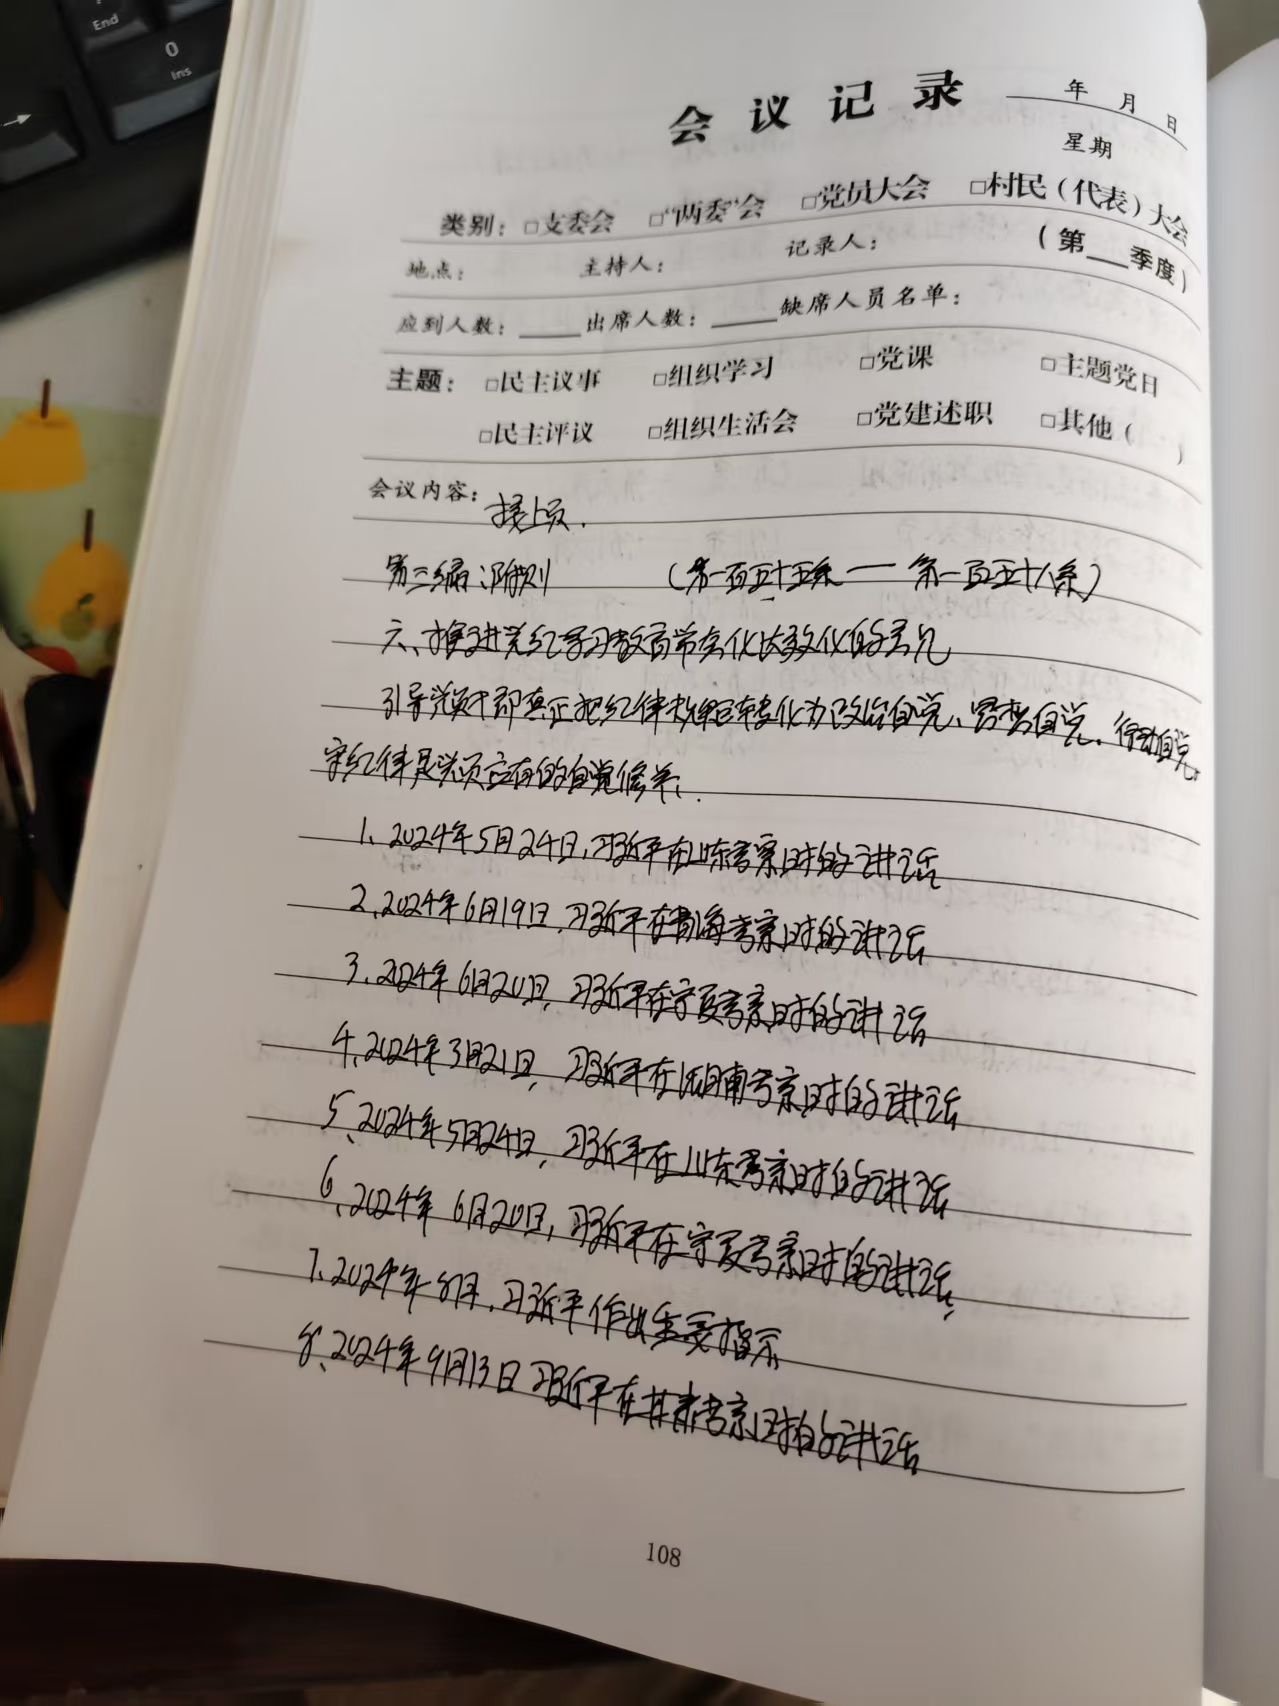 End
0
Ins
会议记录 年 月 日
星期
类别：□支委会 □“两委”会 □党员大会 □村民（代表）大会
地点： 主持人： 记录人： （第___季度）
应到人数：____ 出席人数：____ 缺席人员名单：
主题：□民主议事 □组织学习 □党课 □主题党日
□民主评议 □组织生活会 □党建述职 □其他（ ）
会议内容：接上页.
第三编：附则 （第一百五十五条—第一百五十八条）
六、推进党纪学习教育常态化长效化的意见
引导党员干部真正把纪律规矩转变化为政治自觉、思想自觉、行动自觉.
守纪律是党员应有的自觉修养:
1、2024年5月24日,习近平在山东考察时的讲话
2、2024年6月19日,习近平在青海考察时的讲话
3、2024年6月20日,习近平在宁夏考察时的讲话
4、2024年3月21日,习近平在湖南考察时的讲话
5、2024年5月24日,习近平在山东考察时的讲话
6、2024年6月20日,习近平在宁夏考察时的讲话;
7、2024年8月,习近平作出重要指示
8、2024年9月13日习近平在甘肃考察时的讲话
108